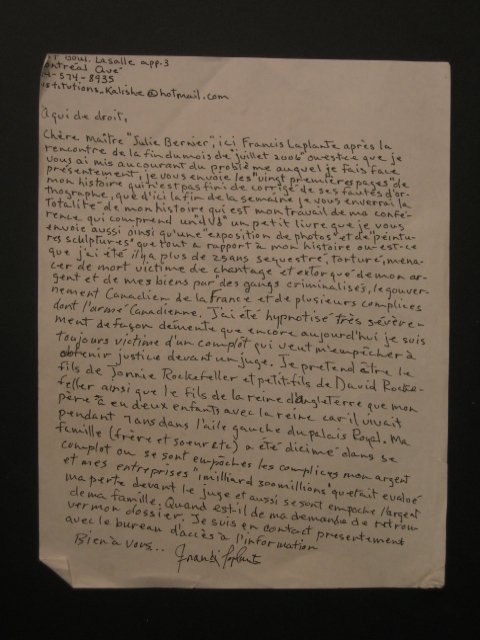 Boul. Lasalle app.3
ontréal Qué
-574-8935
stitutions_Kaliske@hotmail.com
À qui de droit,
Chère Maître "Julie Bernier", ici Francis Laplante après la
rencontre de la fin du mois de "juillet 2006" ou est-ce que je
vous ai mis au courant du problème auquel je fais face
présentement, je vous envoie les "vingt première pages" de
mon histoire qui n'est pas fini de corrigé de ses fautes d'or-
thographe, que d'ici la fin de la semaine je vous enverrai la
totalité de mon histoire qui est mon travail de ma confé-
rence qui comprend un petit livre que je vous
envoie aussi ainsi qu'une "exposition de photos" et de "peintu-
res sculptures" que tout a rapport à mon histoire ou est-ce
que j'ai été il y a plus de 25 ans sequestré, torturé, mena-
cer de mort victime de chantage et extorqué de mon ar-
gent et de mes biens par des gangs criminalisés, le gouver-
nement Canadien de la France et de plusieurs complices
dont l'armé Canadienne. J'ai été hypnotisé très sévère-
ment de façon démente que encore aujourd'hui je suis
toujours victime d'un complot qui veut m'empêcher à
obtenir justice devant un juge. Je pretend être le
fils de Jonnie Rockefeller et petit fils de David Rocke-
feller ainsi que le fils de la reine d'angleterre que mon
père à eu deux enfants avec la reine car il vivait
pendant 7 ans dans l'aile gauche du palais Royal. Ma
famille (frère et soeur etc) a été dicimé dans se
complot ou se sont empôchés les complices mon argent
et mes entreprises "1 milliard 300 millions" qu'était évalué
ma perte devant le juge et aussi se sont empoché l'argent
de ma famille; Quand est-il de ma demande de retrou-
ver mon dossier. Je suis en contact presentement
avec le bureau d'accès à l'information
Bien à vous... Francis Laplante